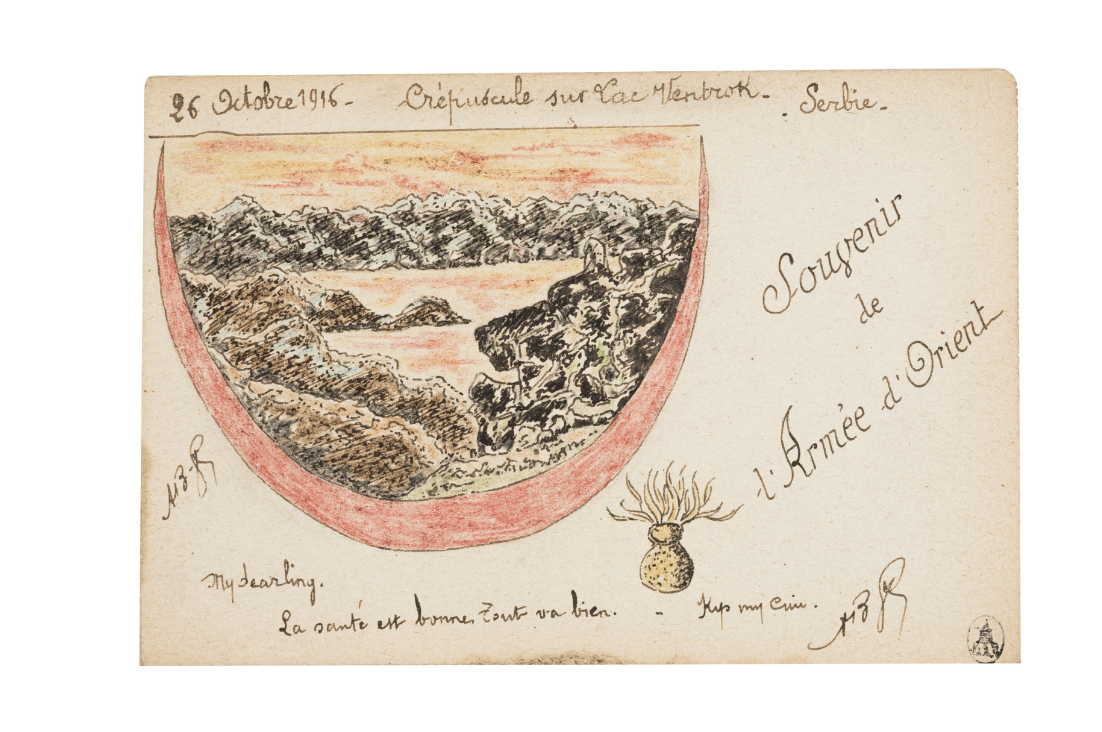 26 Octobre 1916 - Crépuscule sur Lac - Serbie -
Souvenir
de
l'Armée d'Orient
My dearling.
La santé est bonne, Tout va bien. - my